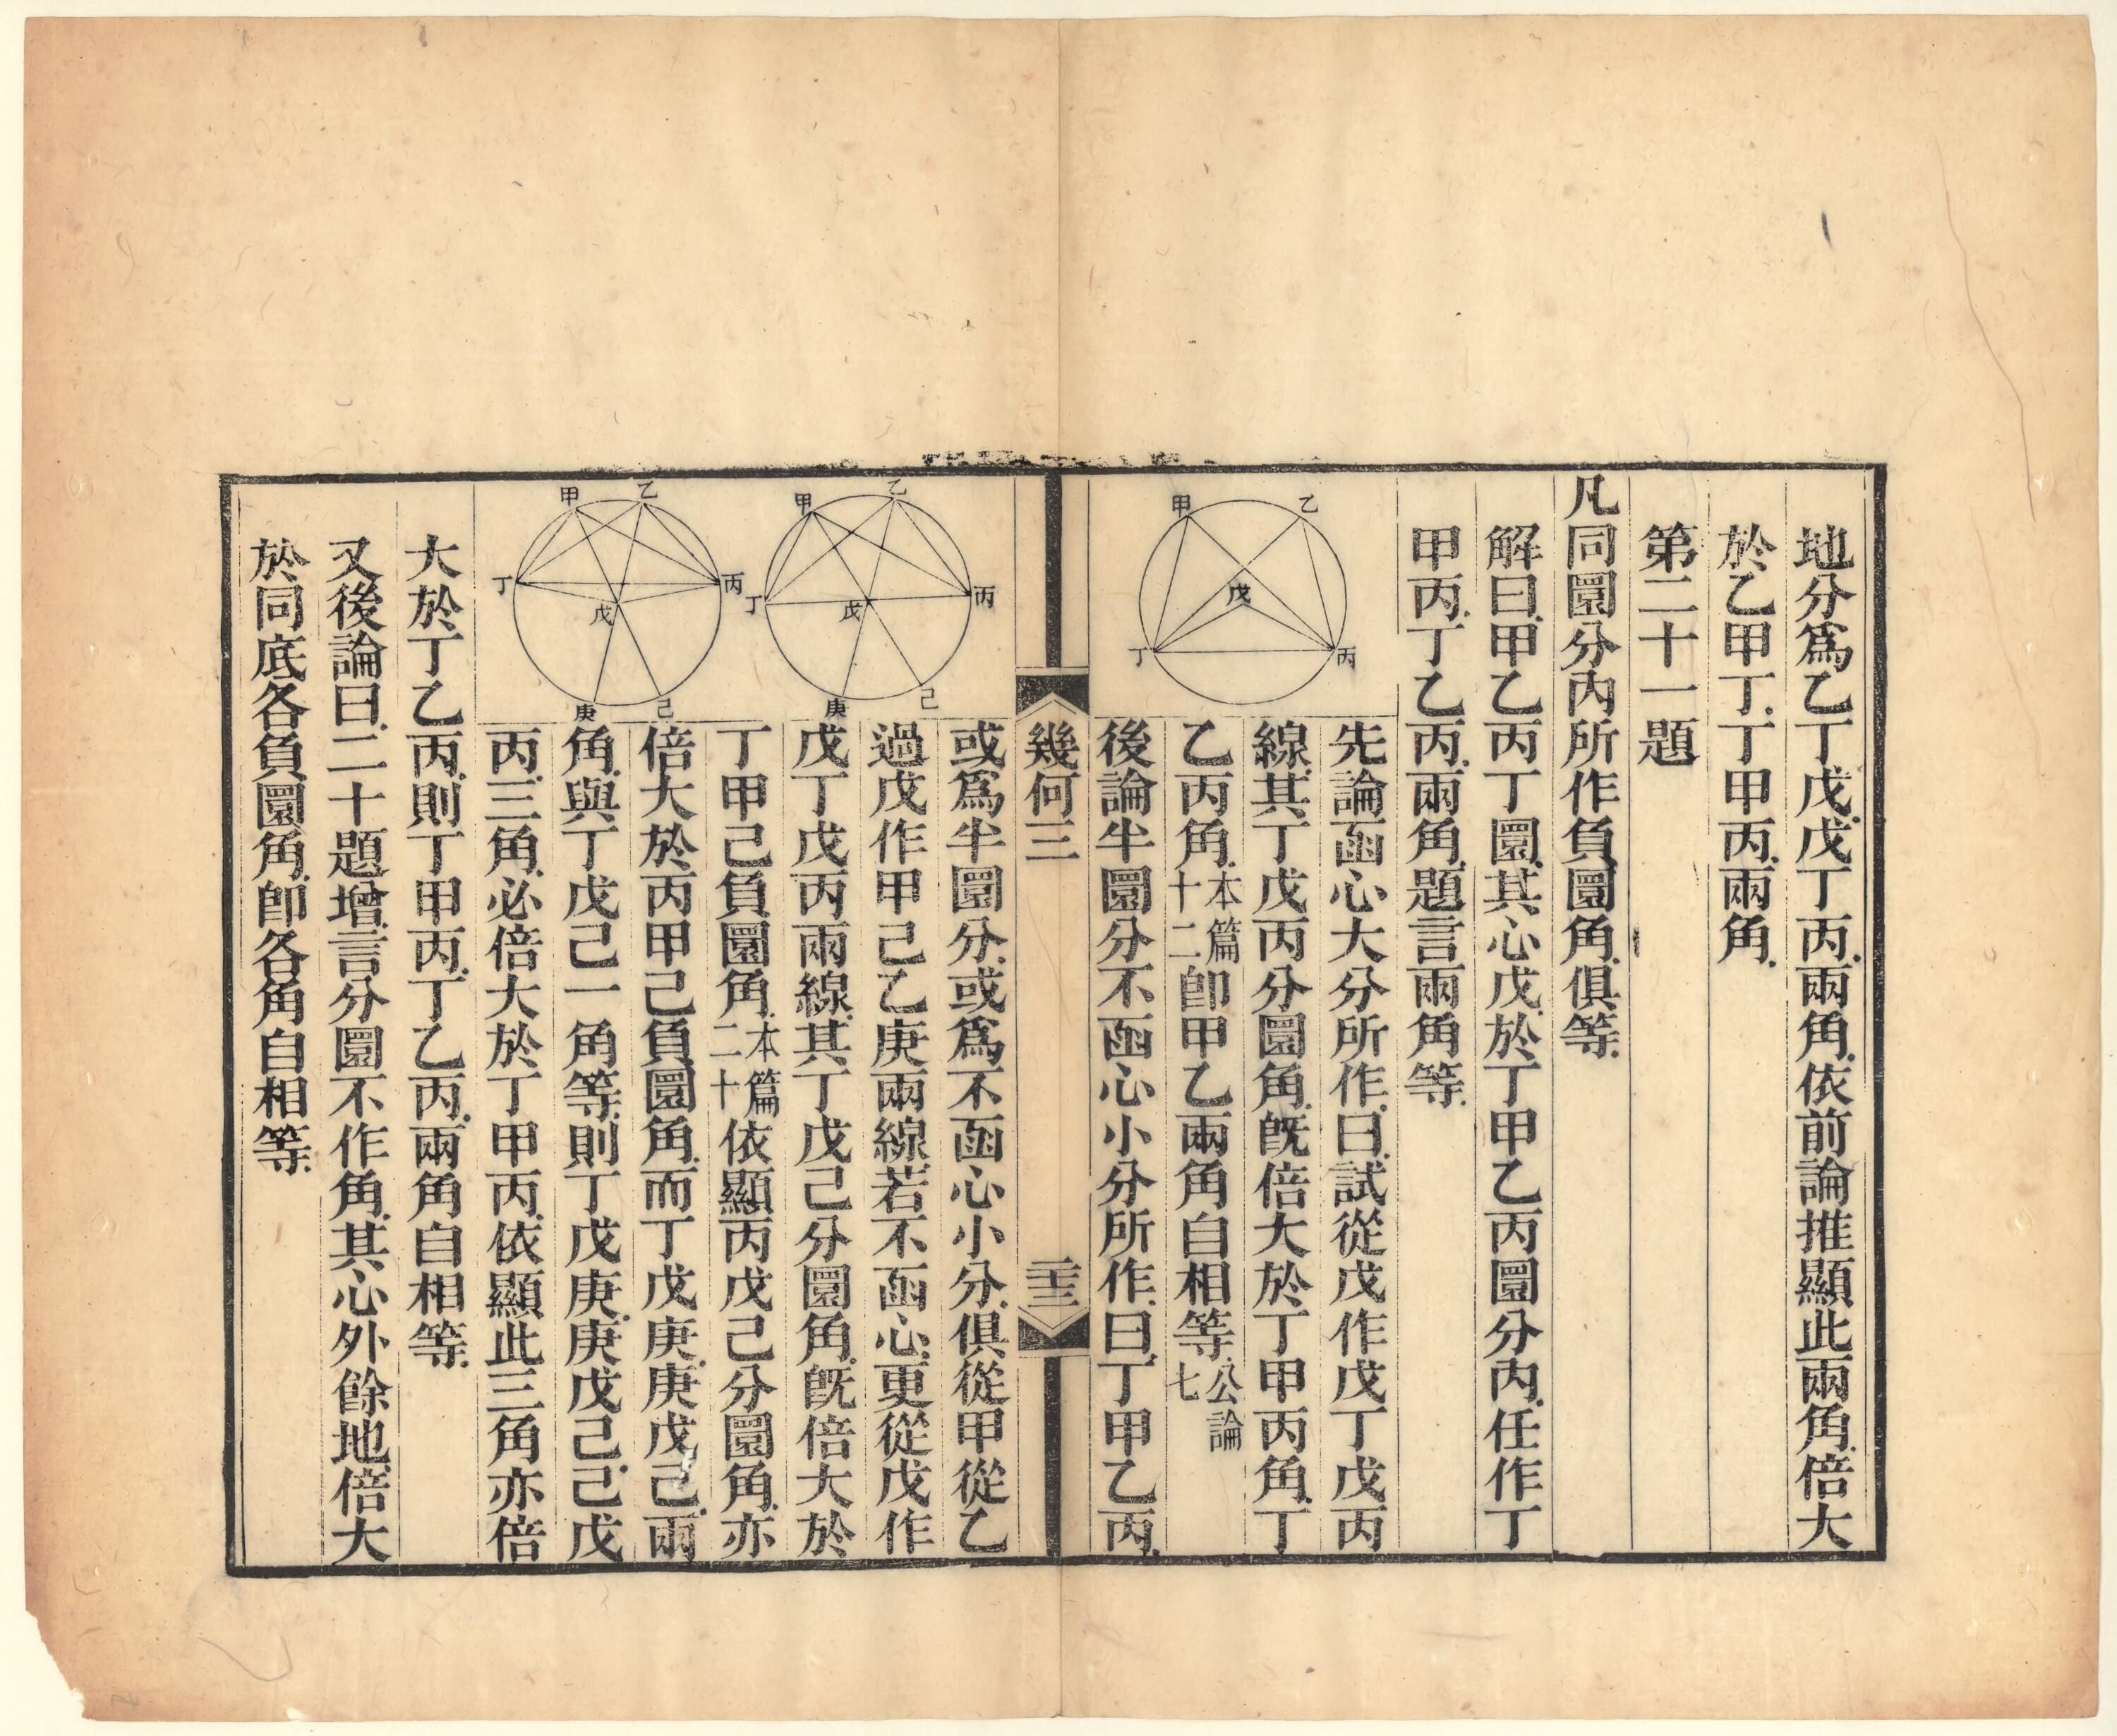 地分爲乙丁戊、戊丁丙、兩角、依前論推顯此兩角、倍大
於乙甲丁、丁甲丙、兩角、
第二十一題
凡同圜分內所作負圜角、俱等、
解曰、甲乙丙丁圜、其心戊、於丁甲乙丙圜分內、任作丁
甲丙、丁乙丙、兩角、題言兩角等、
甲 乙 丙 丁 戊
先論函心大分所作、曰、試從戊作戊丁戊丙
線、其丁戊丙分圜角、旣倍大於丁甲丙角、丁
乙丙角、本篇十二卽甲乙兩角自相等、公論七
後論半圜分不函心小分所作、曰、丁甲乙丙、
幾何三
二十三
甲 乙 丙 丁 戊 己 庚
甲 乙 丙 丁 戊 己 庚
或爲半圜分、或爲不函心小分、俱從甲從乙
過戊作甲己乙庚兩線、若不函心、更從戊作
戊丁戊丙兩線、其丁戊己分圜角、旣倍大於
丁甲己負圜角、本篇二十依顯丙戊己分圜角、亦
倍大於丙甲己負圜角、而丁戊庚、庚戊己、兩
角、與丁戊己一角等、則丁戊庚、庚戊己、己戊
丙、三角、必倍大於丁甲丙、依顯此三角亦倍
大於丁乙丙、則丁甲丙、丁乙丙、兩角自相等、
又後論曰、二十題增、言分圜不作角、其心外餘地、倍大
於同底各負圜角、卽各角自相等、